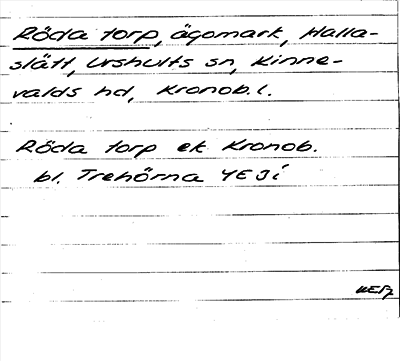 Röda torp, ägomark, Halla-
slätt, Urshults sn, Kinne-
valds hd, Kronob. l.
Röda torp ek Kronob.
bl. Trehörna 4E 3i